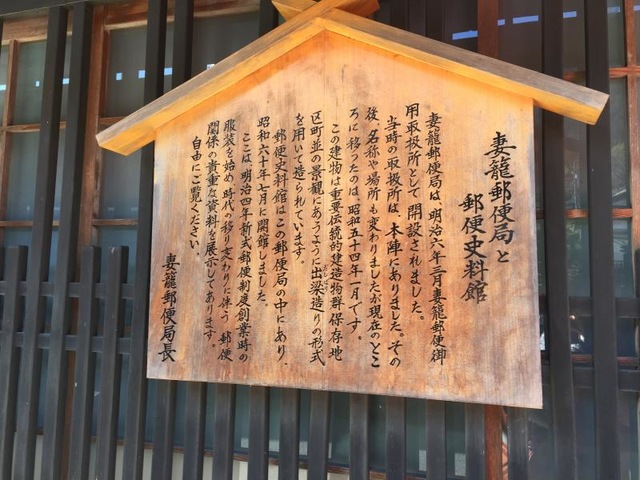 妻籠郵便局と
郵便史料館
妻籠郵便局は、明治六年三月妻籠郵便御
用取扱所として開設されました。
当時の取扱所は、本陣にありました。その
後、名称や場所も変わりましたが現在のとこ
ろに移ったのは、昭和五十四年一月です。
この建物は重要伝統的建造物群保存地
区町並の景観にあうように出梁造りの形式
を用いて造られています。
郵便史料館はこの郵便局の中にあり、
昭和六十年七月に開館しました。
ここは、明治四年新式郵便制度創業時の
服装を始め、時代の移り変わりに伴う、郵便
関係の貴重な資料を展示してあります。
自由にご覧ください。
妻籠郵便局長